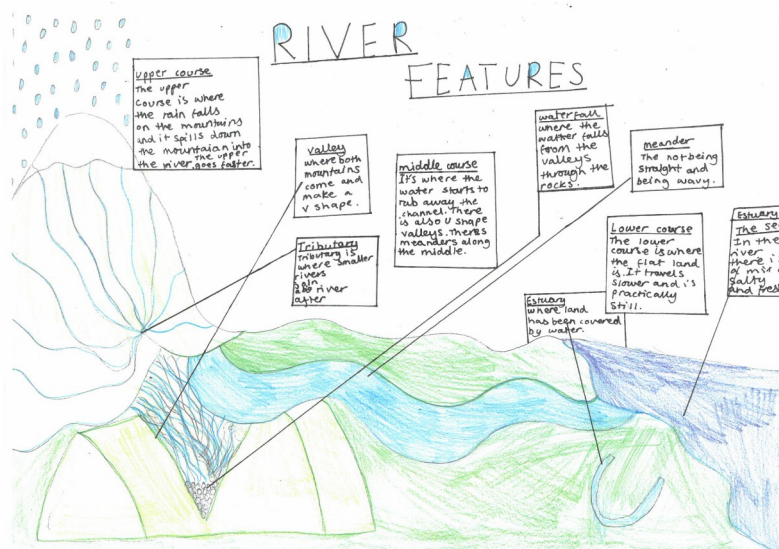 RIVER
FEATURES
upper course
The upper
course is where
the rain falls
on the mountains
and it spills down
the mountaian into
the river. The upper
goes faster.
valley
where both
mountains
come and
make a
v shape.
Tributary
Tributary is
where smaller
rivers
river
after
middle course
It's where the
water starts to
rub away the
channel. There
is also U shape
valleys. Theres
meanders along
the middle.
waterfall
where the
watter falls
from the
valleys
through the
rocks.
meander
The not being
straight and
being wavy.
Lower course
The lower
course is where
the flat land
is. It travels
slower and is
practically
still.
Estuary
where land
has been covered
by water.
Estuary
The se
In the
river
there i
a mix
salty
and fres